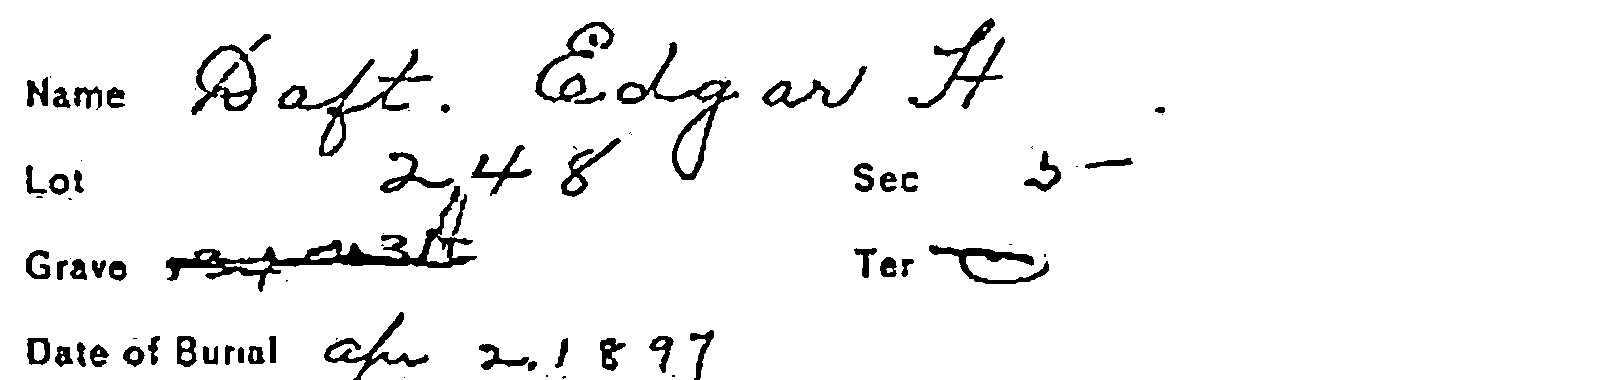 Name Daft. Edgar H
Lot 248 Sec 5
Grave
Ter
Date of Burial Apr 2. 1897